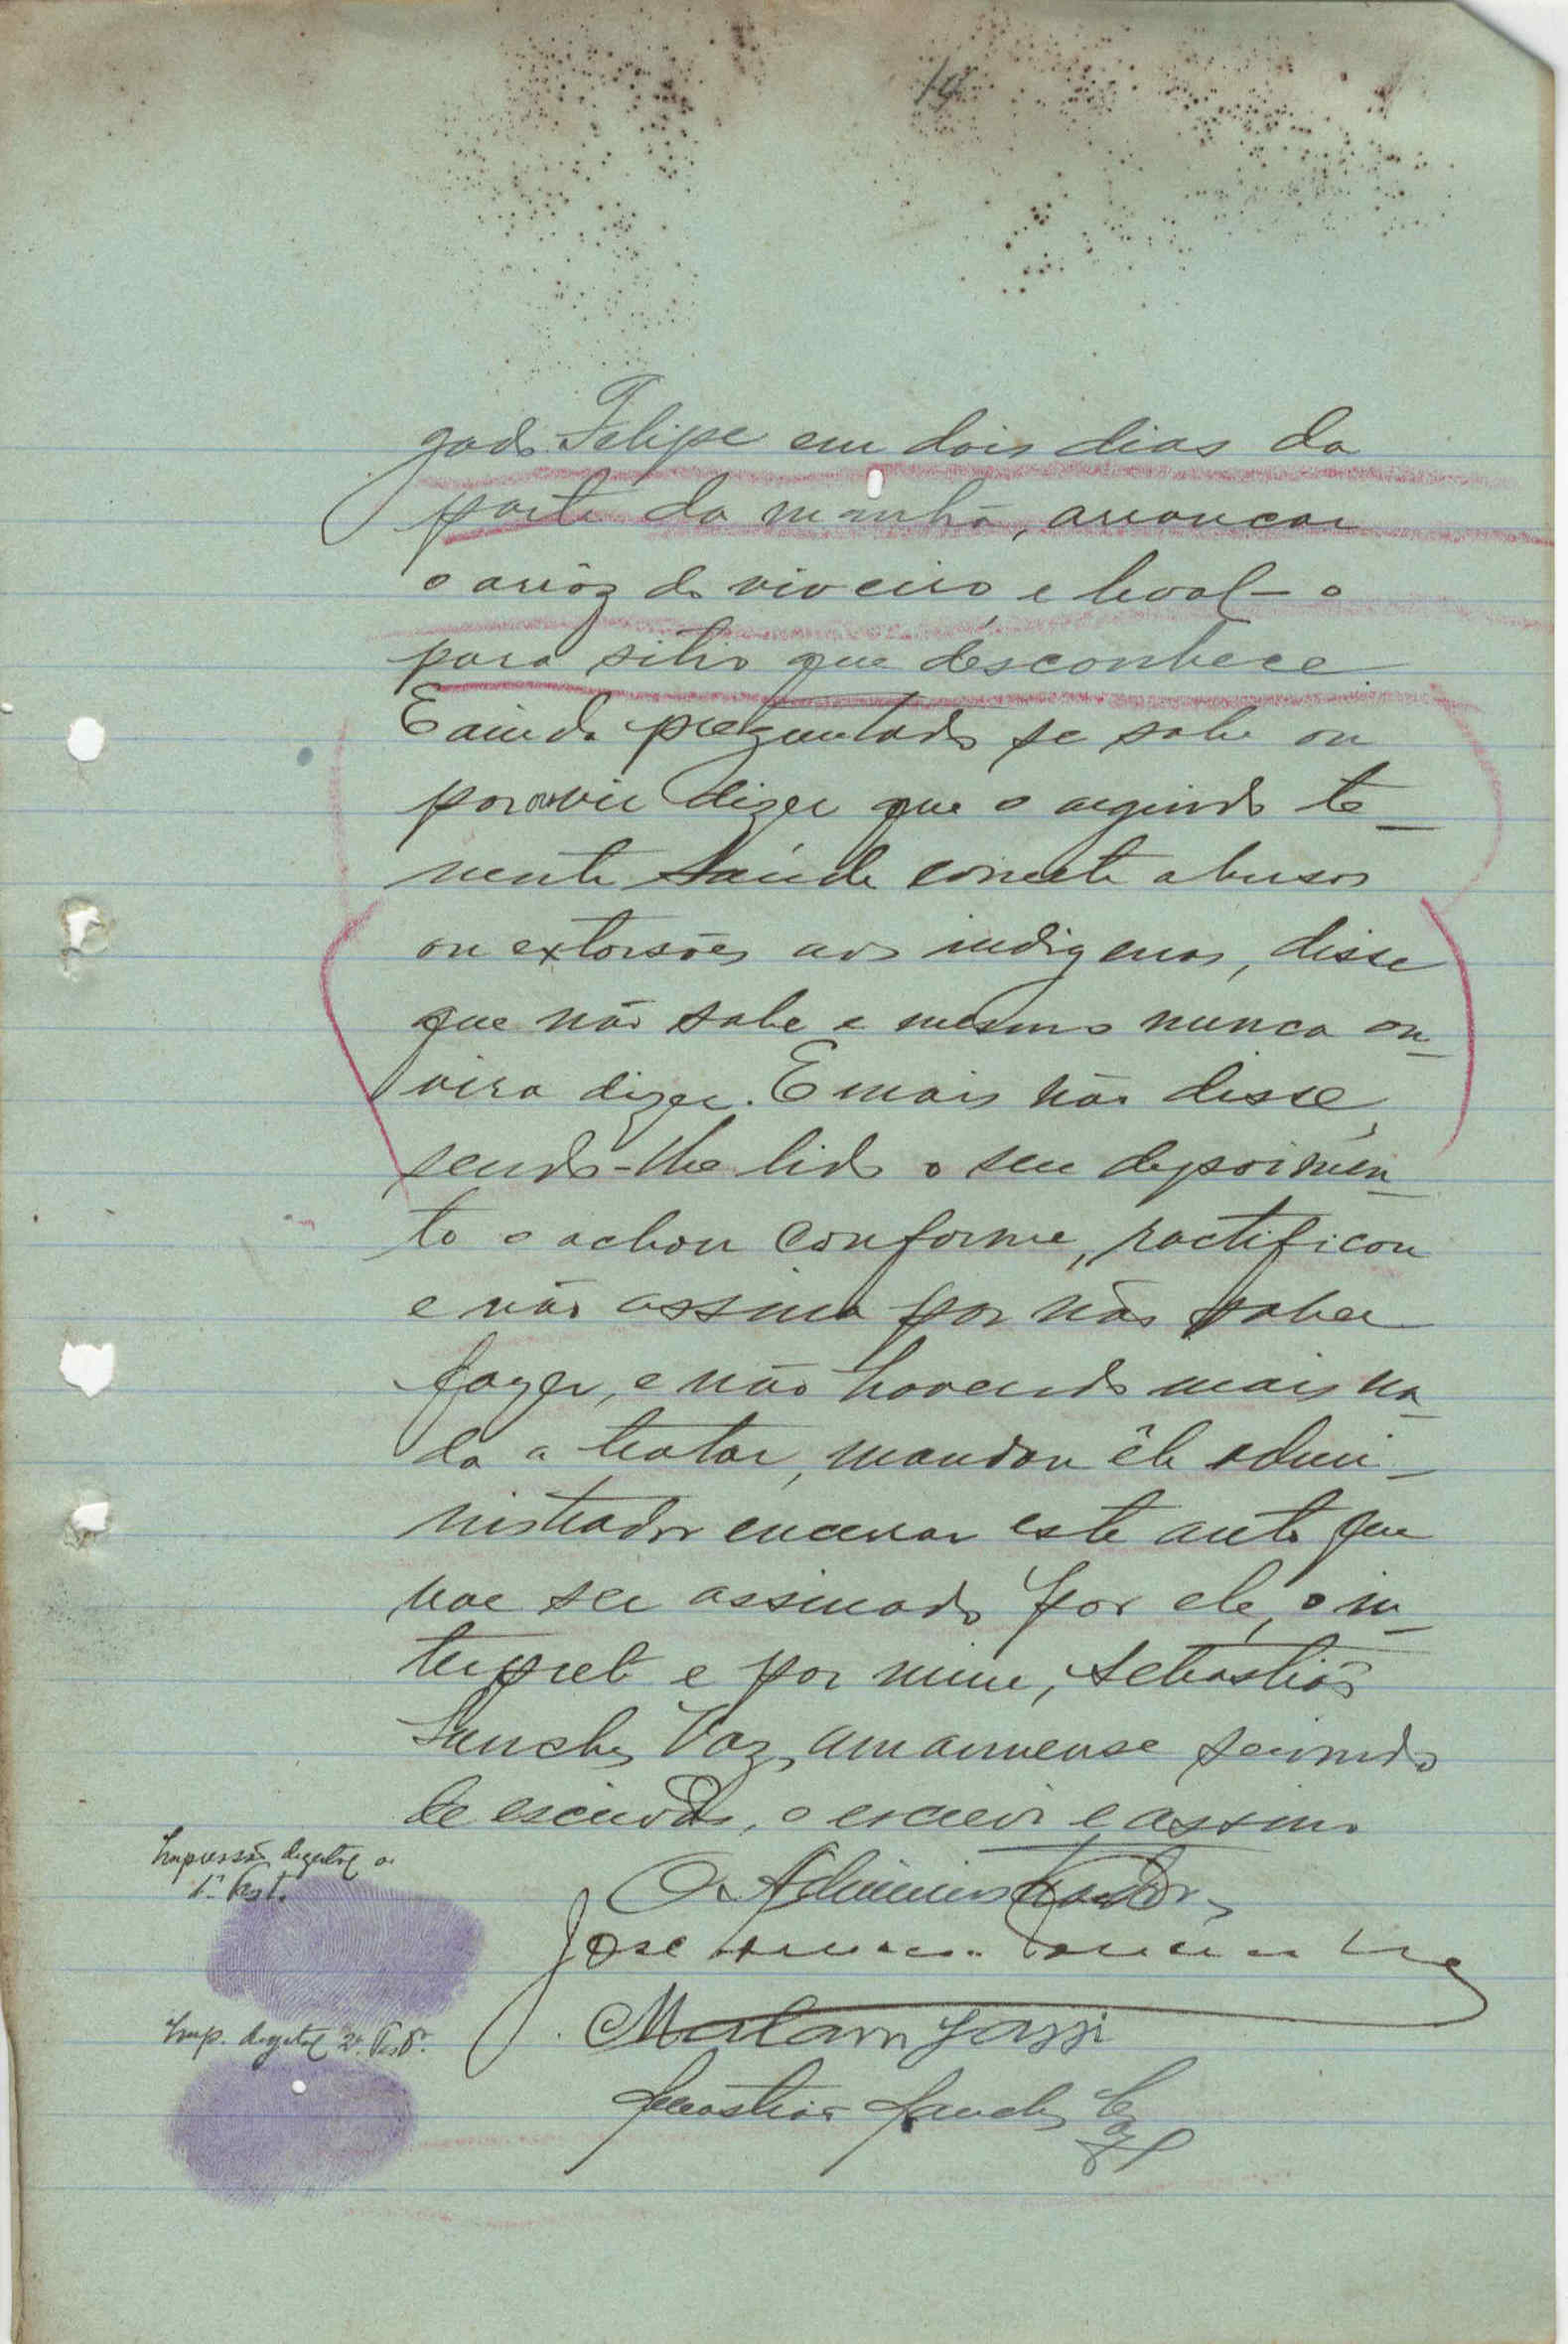 14
gado Felipe em dois dias da
parte da manhã, arrancar
o arrôz do viveiro, e leval-o
para sitio que desconhece.
E ainda preguntado se sabe ou
por ouvir dizer que o arguido te-
nente Saúde comete abusos
ou extorsões aos indigenas, disse
que não sabe e mesmo nunca ou-
vira dizer. E mais não disse,
sendo-lhe lido o seu depoimen-
to o achou conforme, ractificou
e não assina por não saber
fazer, e não havendo mais na-
da a tratar, mandou êle admi-
nistrador encerrar este auto que
vae ser assinado por ele, o in-
terprete e por mim, Sebastião
Sanches Vaz, amanuense servindo
de escrivão, o escrevi e assino.
O Administrador,
José
Malam Jassi
Sebastião Sanches Vaz
Impressão digital da
1ª test.
Imp. digital 2ª test.